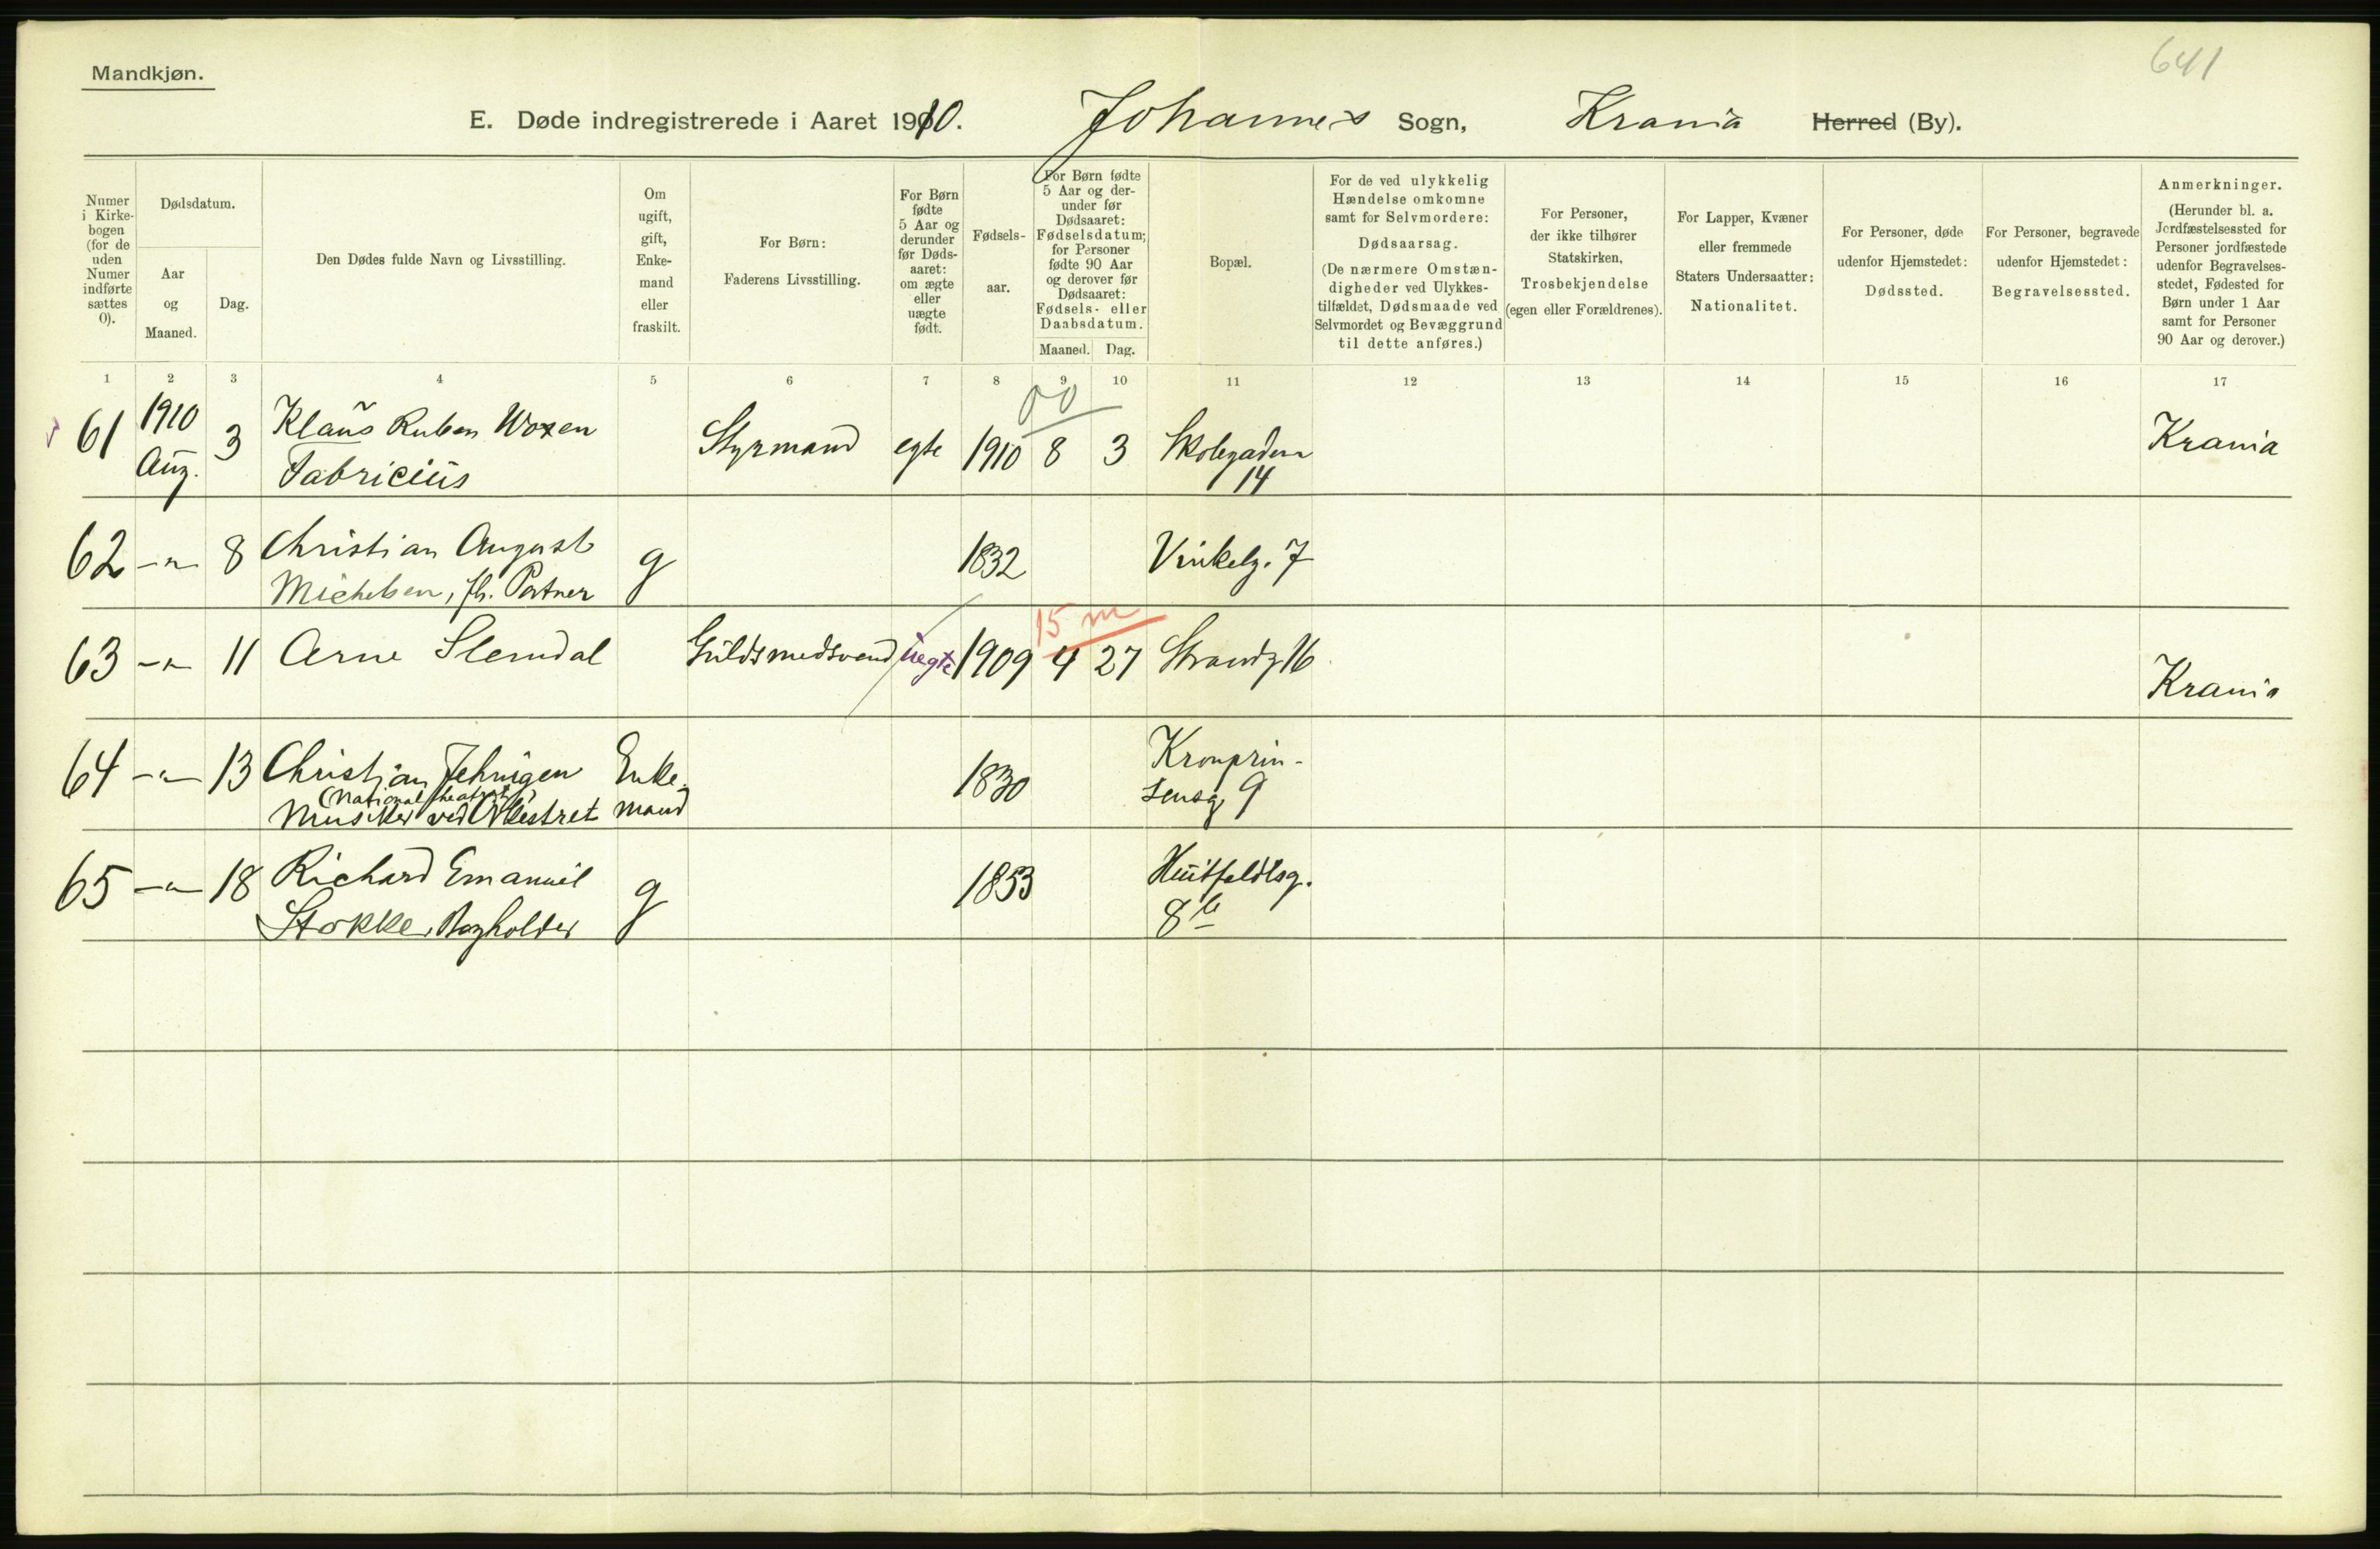 641
Mandkjøn.
E. Døde indregistrerede i Aaret 1910. Johannes Sogn, Krania Herred (By).
Numer i Kirkebogen (for de uden Numer indførte sættes 0).
Dødsdatum.
Aar og Maaned.
Dag.
Den Dødes fulde Navn og Livsstilling.
Om ugift, gift, Enkemand eller fraskilt.
For Børn:
Faderens Livsstilling.
For Børn fødte 5 Aar og derunder før Dødsaaret: om ægte eller uægte født.
Fødselsaar.
For Børn fødte 5 Aar og derunder før Dødsaaret: Fødselsdatum; for Personer fødte 90 Aar og derover før Dødsaaret: Fødsels- eller Daabsdatum.
Maaned. Dag.
Bopæl.
For de ved ulykkelig Hændelse omkomne samt for Selvmordere:
Dødsaarsag.
(De nærmere Omstændigheder ved Ulykkestilfældet, Dødsmaade ved Selvmordet og Bevæggrund til dette anføres.)
For Personer, der ikke tilhører Statskirken,
Trosbekjendelse
(egen eller Forældrenes).
For Lapper, Kvæner eller fremmede Staters Undersaatter:
Nationalitet.
For Personer, døde udenfor Hjemstedet:
Dødssted.
For Personer, begravede udenfor Hjemstedet:
Begravelsessted.
Anmerkninger.
(Herunder bl. a. Jordfæstelsessted for Personer jordfæstede udenfor Begravelsesstedet, Fødested for Børn under 1 Aar samt for Personer 90 Aar og derover.)
1 2 3 4 5 6 7 8 9 10 11 12 13 14 15 16 17
00
61 1910 Aug. 3 Klaus Ruben Woxen Styrmand egte 1910 8 3 Skolegaden Krania
Fabricius 14
62 -"- 8 Christian August g 1832 Vinkelg. 7
Michelsen, fh. Portner
15 m
63 -"- 11 Arne Slemdal Guldsmedsvend uegte 1909 4 27 Strandg 16 Krania
64 -"- 13 Christian Jehnigen Enke- 1830 Kronprin-
(Nationaltheatret)
Musiker ved Orkestret mand sensg 9
65 -"- 18 Richard Emanuel g 1853 Huitfeldtsg.
Stokke, Bogholder 8 b